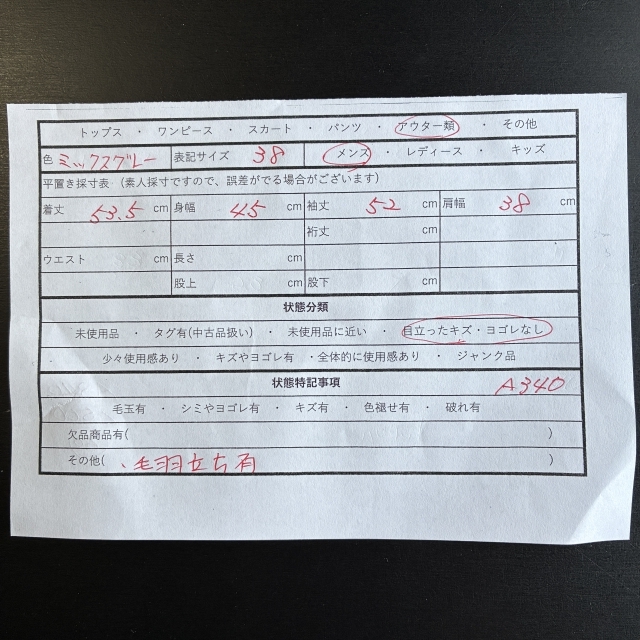 トップス ・ ワンピース ・ スカート ・ パンツ ・ アウター類 ・ その他
色 ミックスグレー 表記サイズ 38 メンズ ・ レディース ・ キッズ
平置き採寸表（素人採寸ですので、誤差がでる場合がございます）
着丈 53.5 cm 身幅 45 cm 袖丈 52 cm 肩幅 38 cm
裄丈 cm
ウエスト cm 長さ cm
股上 cm 股下 cm
状態分類
未使用品 ・ タグ有(中古品扱い) ・ 未使用品に近い ・ 目立ったキズ・ヨゴレなし
少々使用感あり ・ キズやヨゴレ有 ・全体的に使用感あり ・ ジャンク品
状態特記事項 A340
毛玉有 ・ シミやヨゴレ有 ・ キズ有 ・ 色褪せ有 ・ 破れ有
欠品商品有( )
その他( ・毛羽立ち有 )